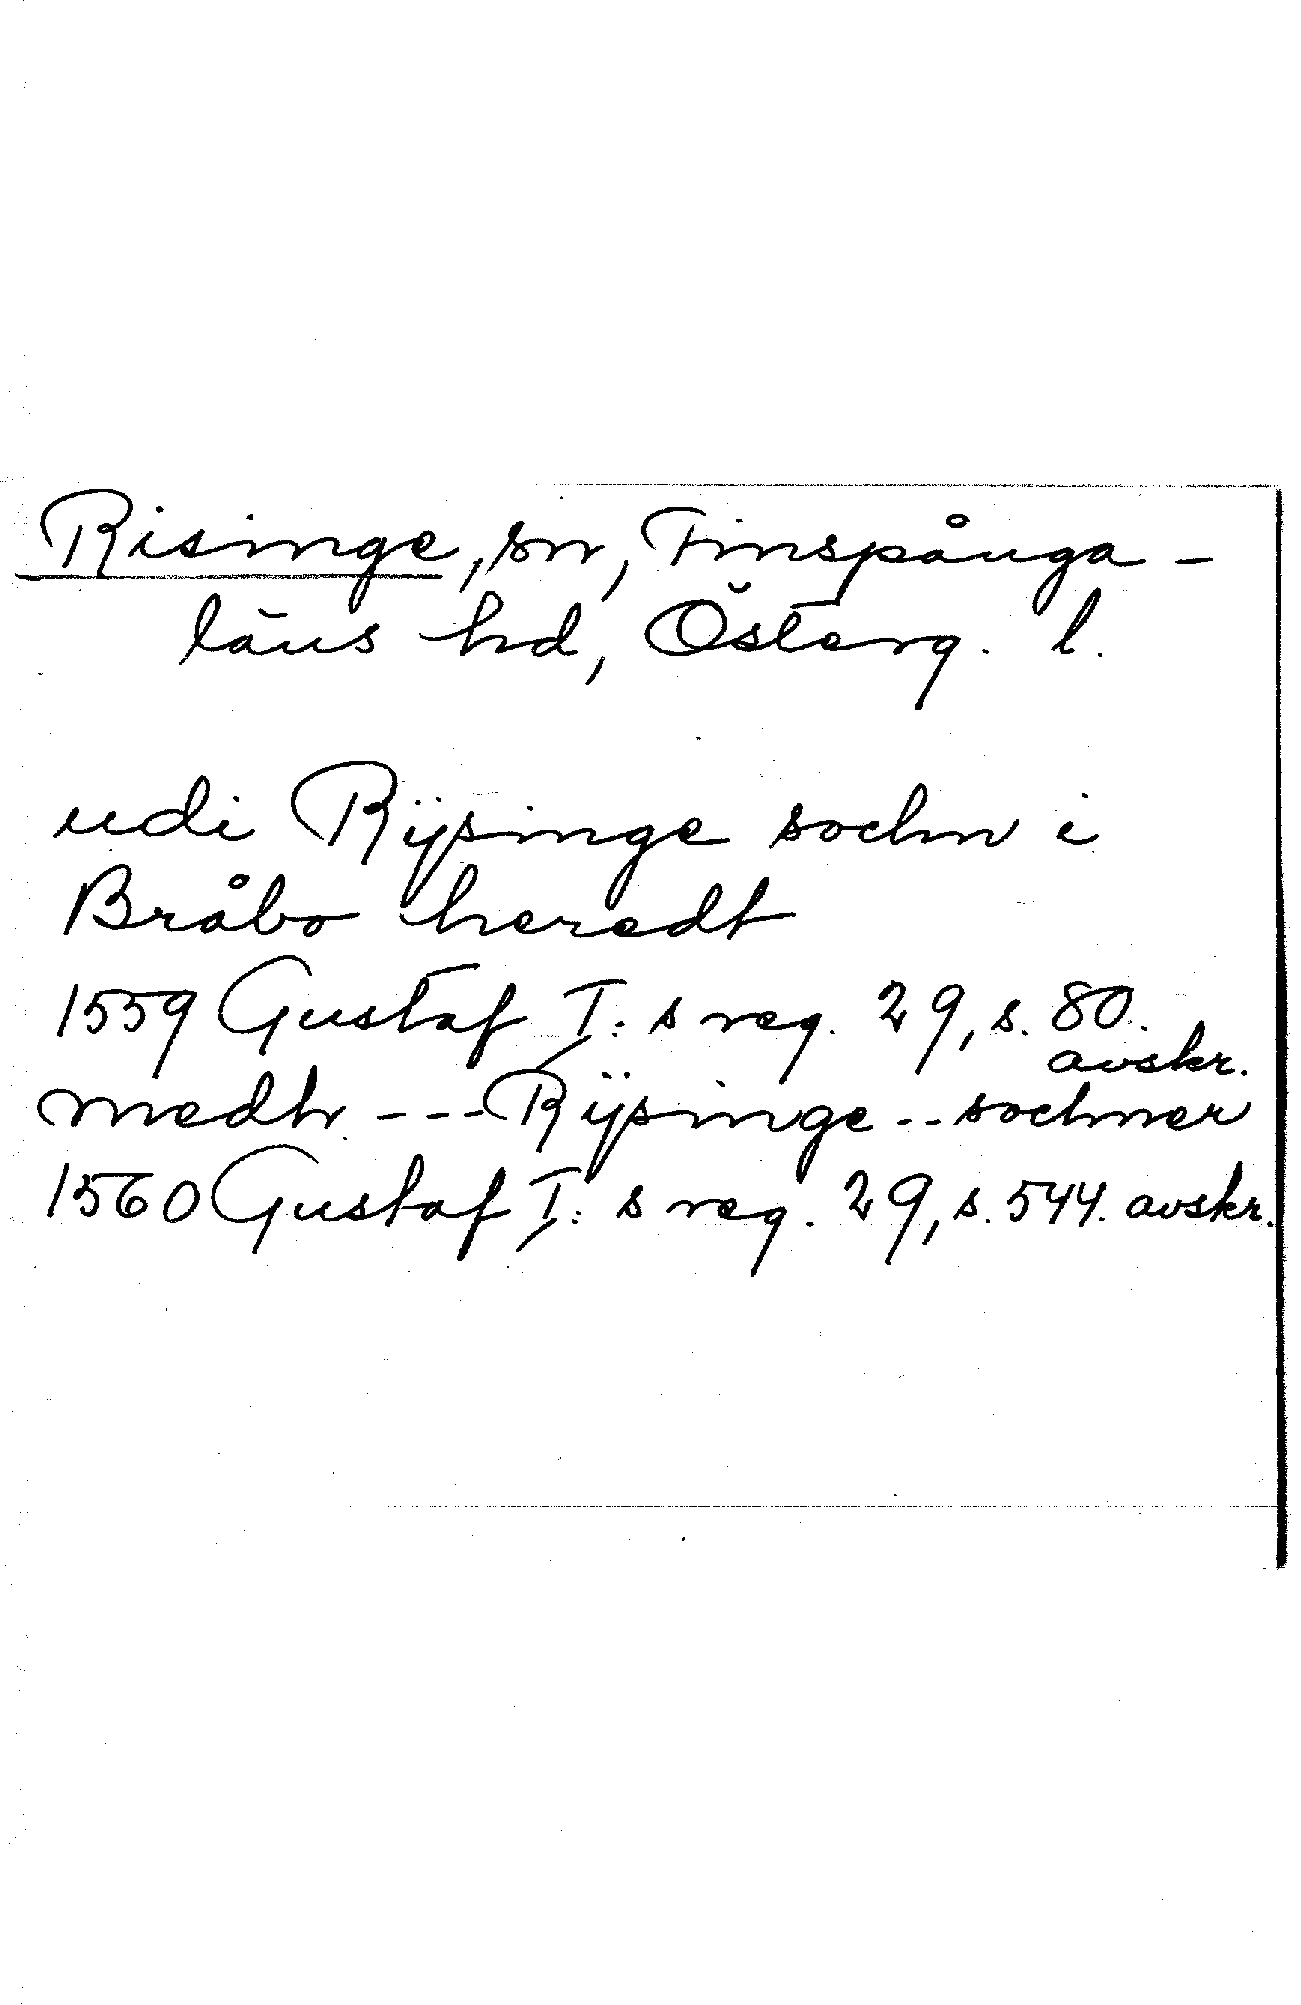 Risinge, sn, Finspånga-
läns hd, Österg. l.
udi Rÿsinge sochn i
Bråbo heredt
1559 Gustaf I:s reg. 29, s. 80.
avskr.
medh --- Rÿsinge -- sochner
1560 Gustaf I:s reg. 29, s. 544. avskr.